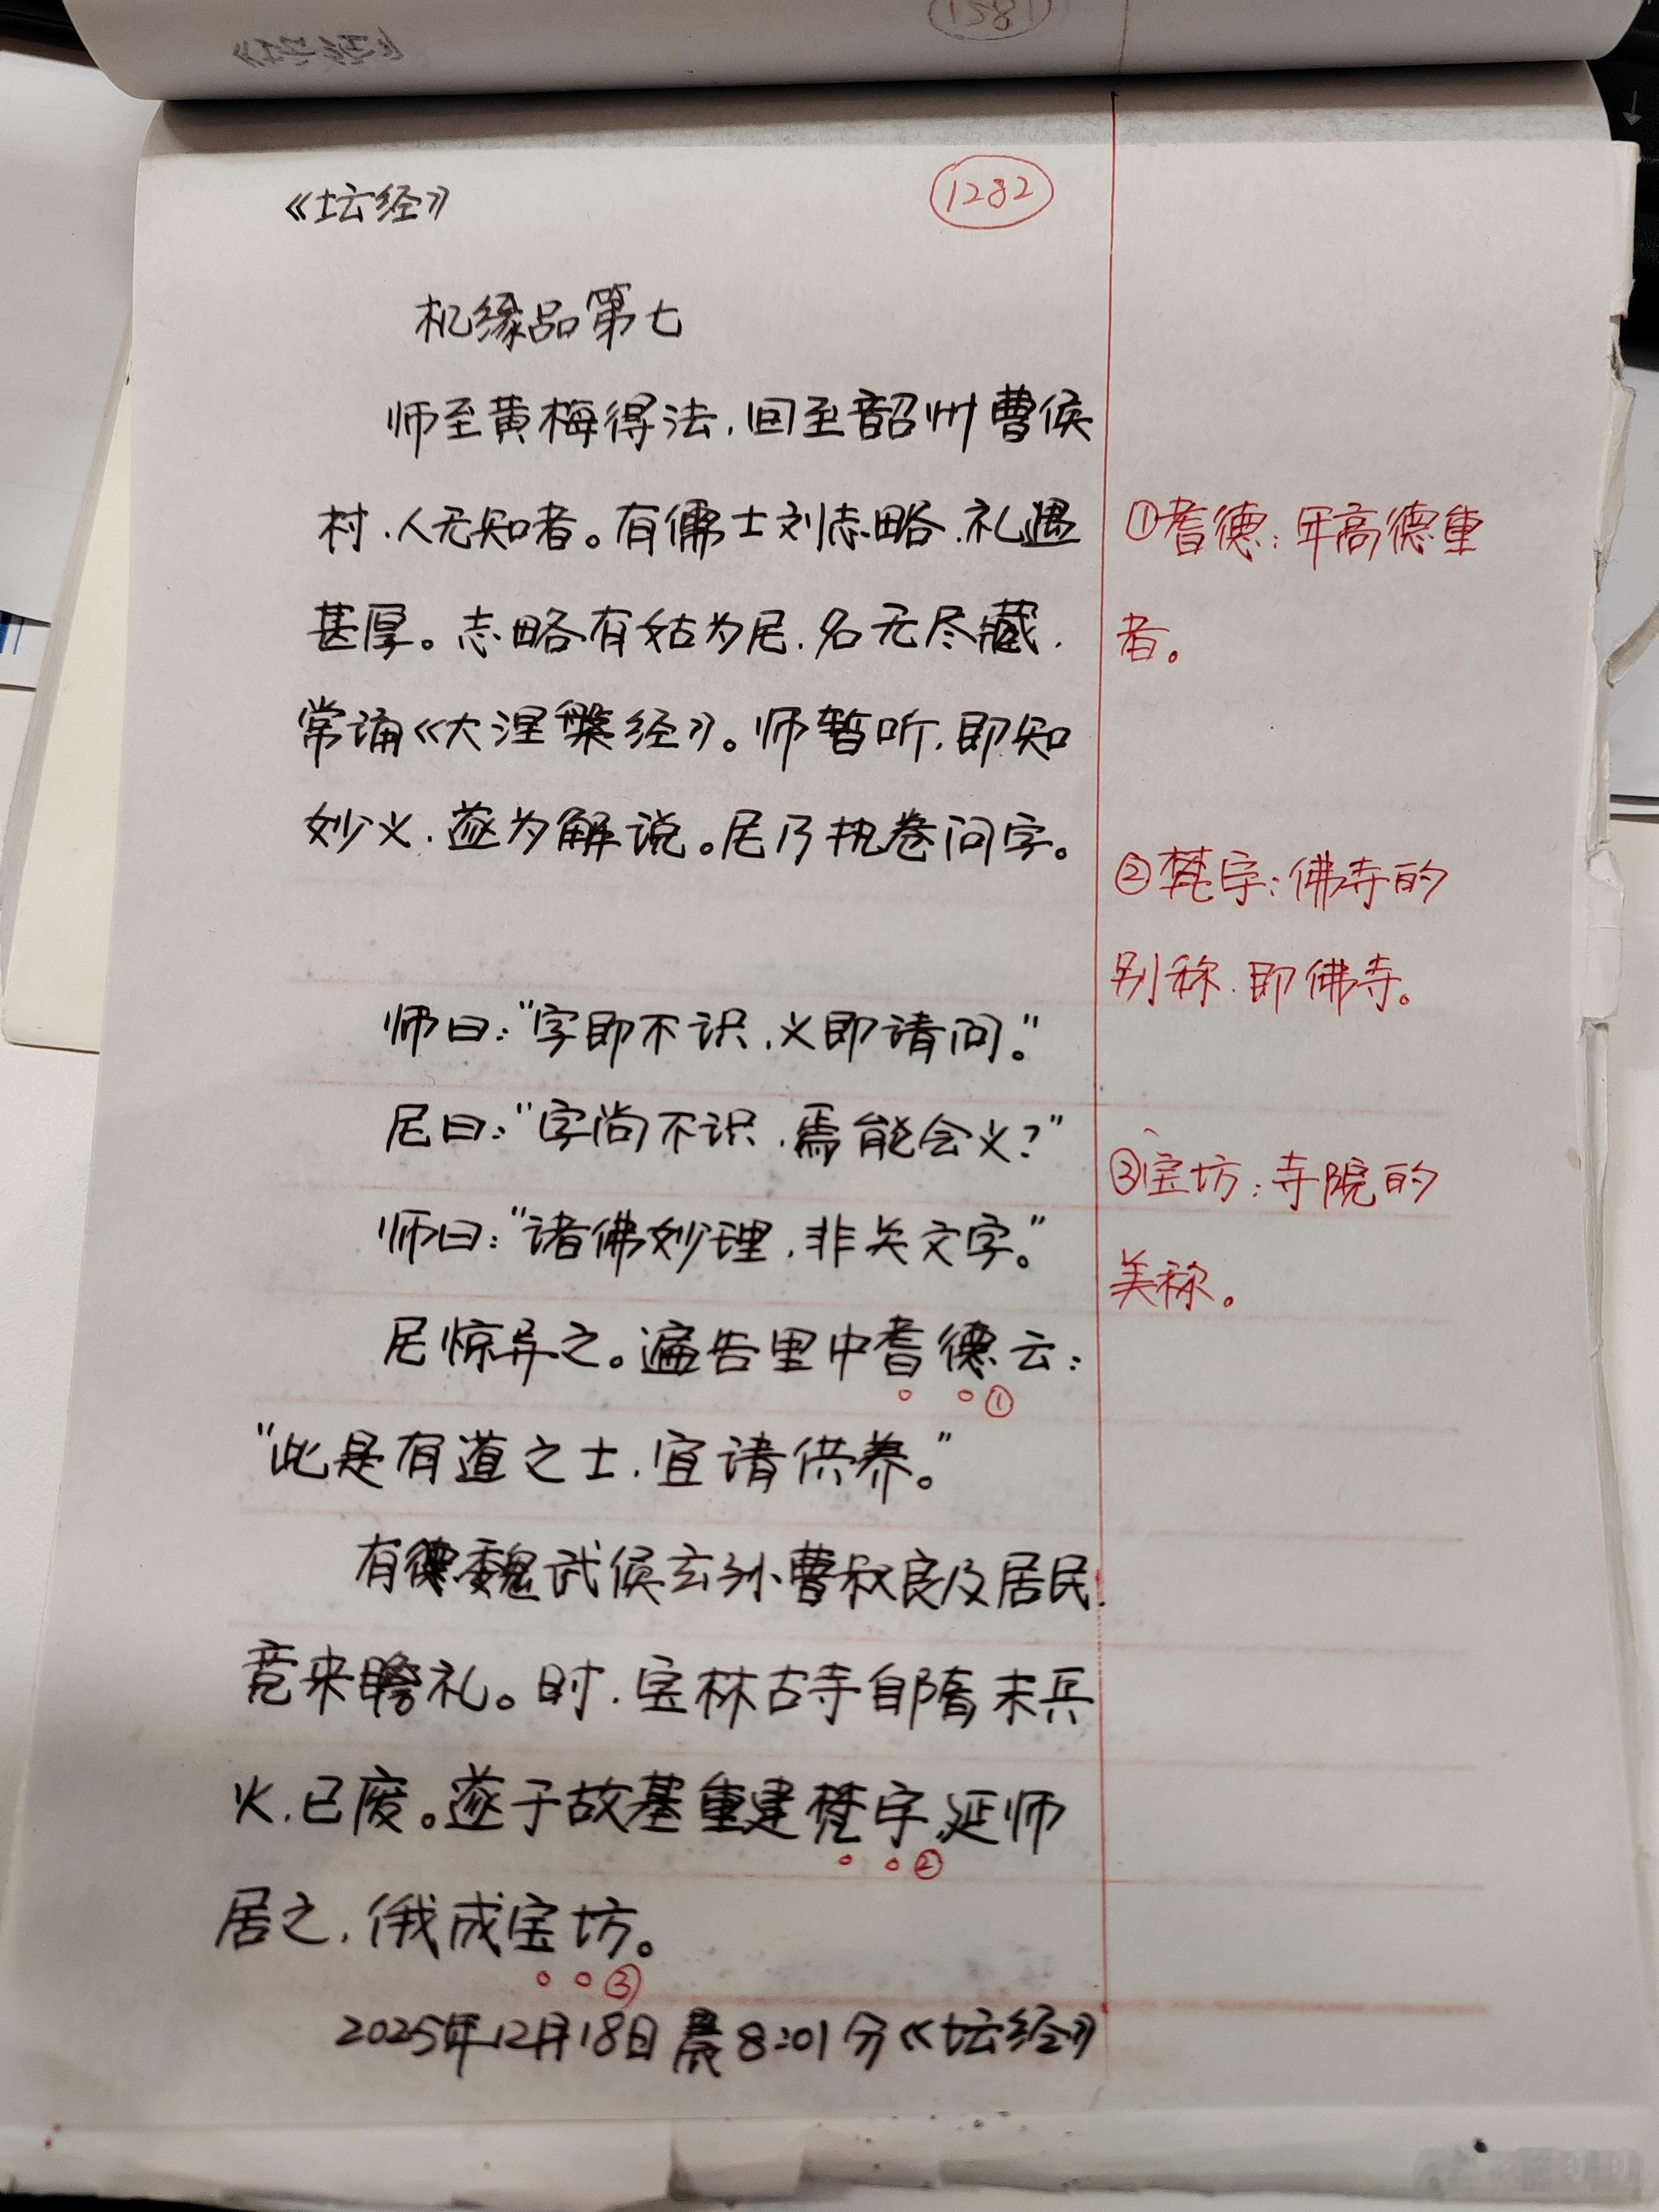 《坛经》
1282
机缘品第七
师至黄梅得法，回至韶州曹侯
村，人无知者。有儒士刘志略，礼遇
甚厚。志略有姑为尼，名无尽藏，
常诵《大涅槃经》。师暂听，即知
妙义，遂为解说。尼乃执卷问字。
师曰：“字即不识，义即请问。”
尼曰：“字尚不识，焉能会义？”
师曰：“诸佛妙理，非关文字。”
尼惊异之。遍告里中耆德云：
①
“此是有道之士，宜请供养。”
有魏武侯玄孙曹叔良及居民，
竞来瞻礼。时，宝林古寺自隋末兵
火，已废。遂于故基重建梵宇，延师
②
居之，俄成宝坊。
③
2025年12月18日晨8:01分《坛经》
①耆德：年高德重
者。
②梵宇：佛寺的
别称，即佛寺。
③宝坊：寺院的
美称。